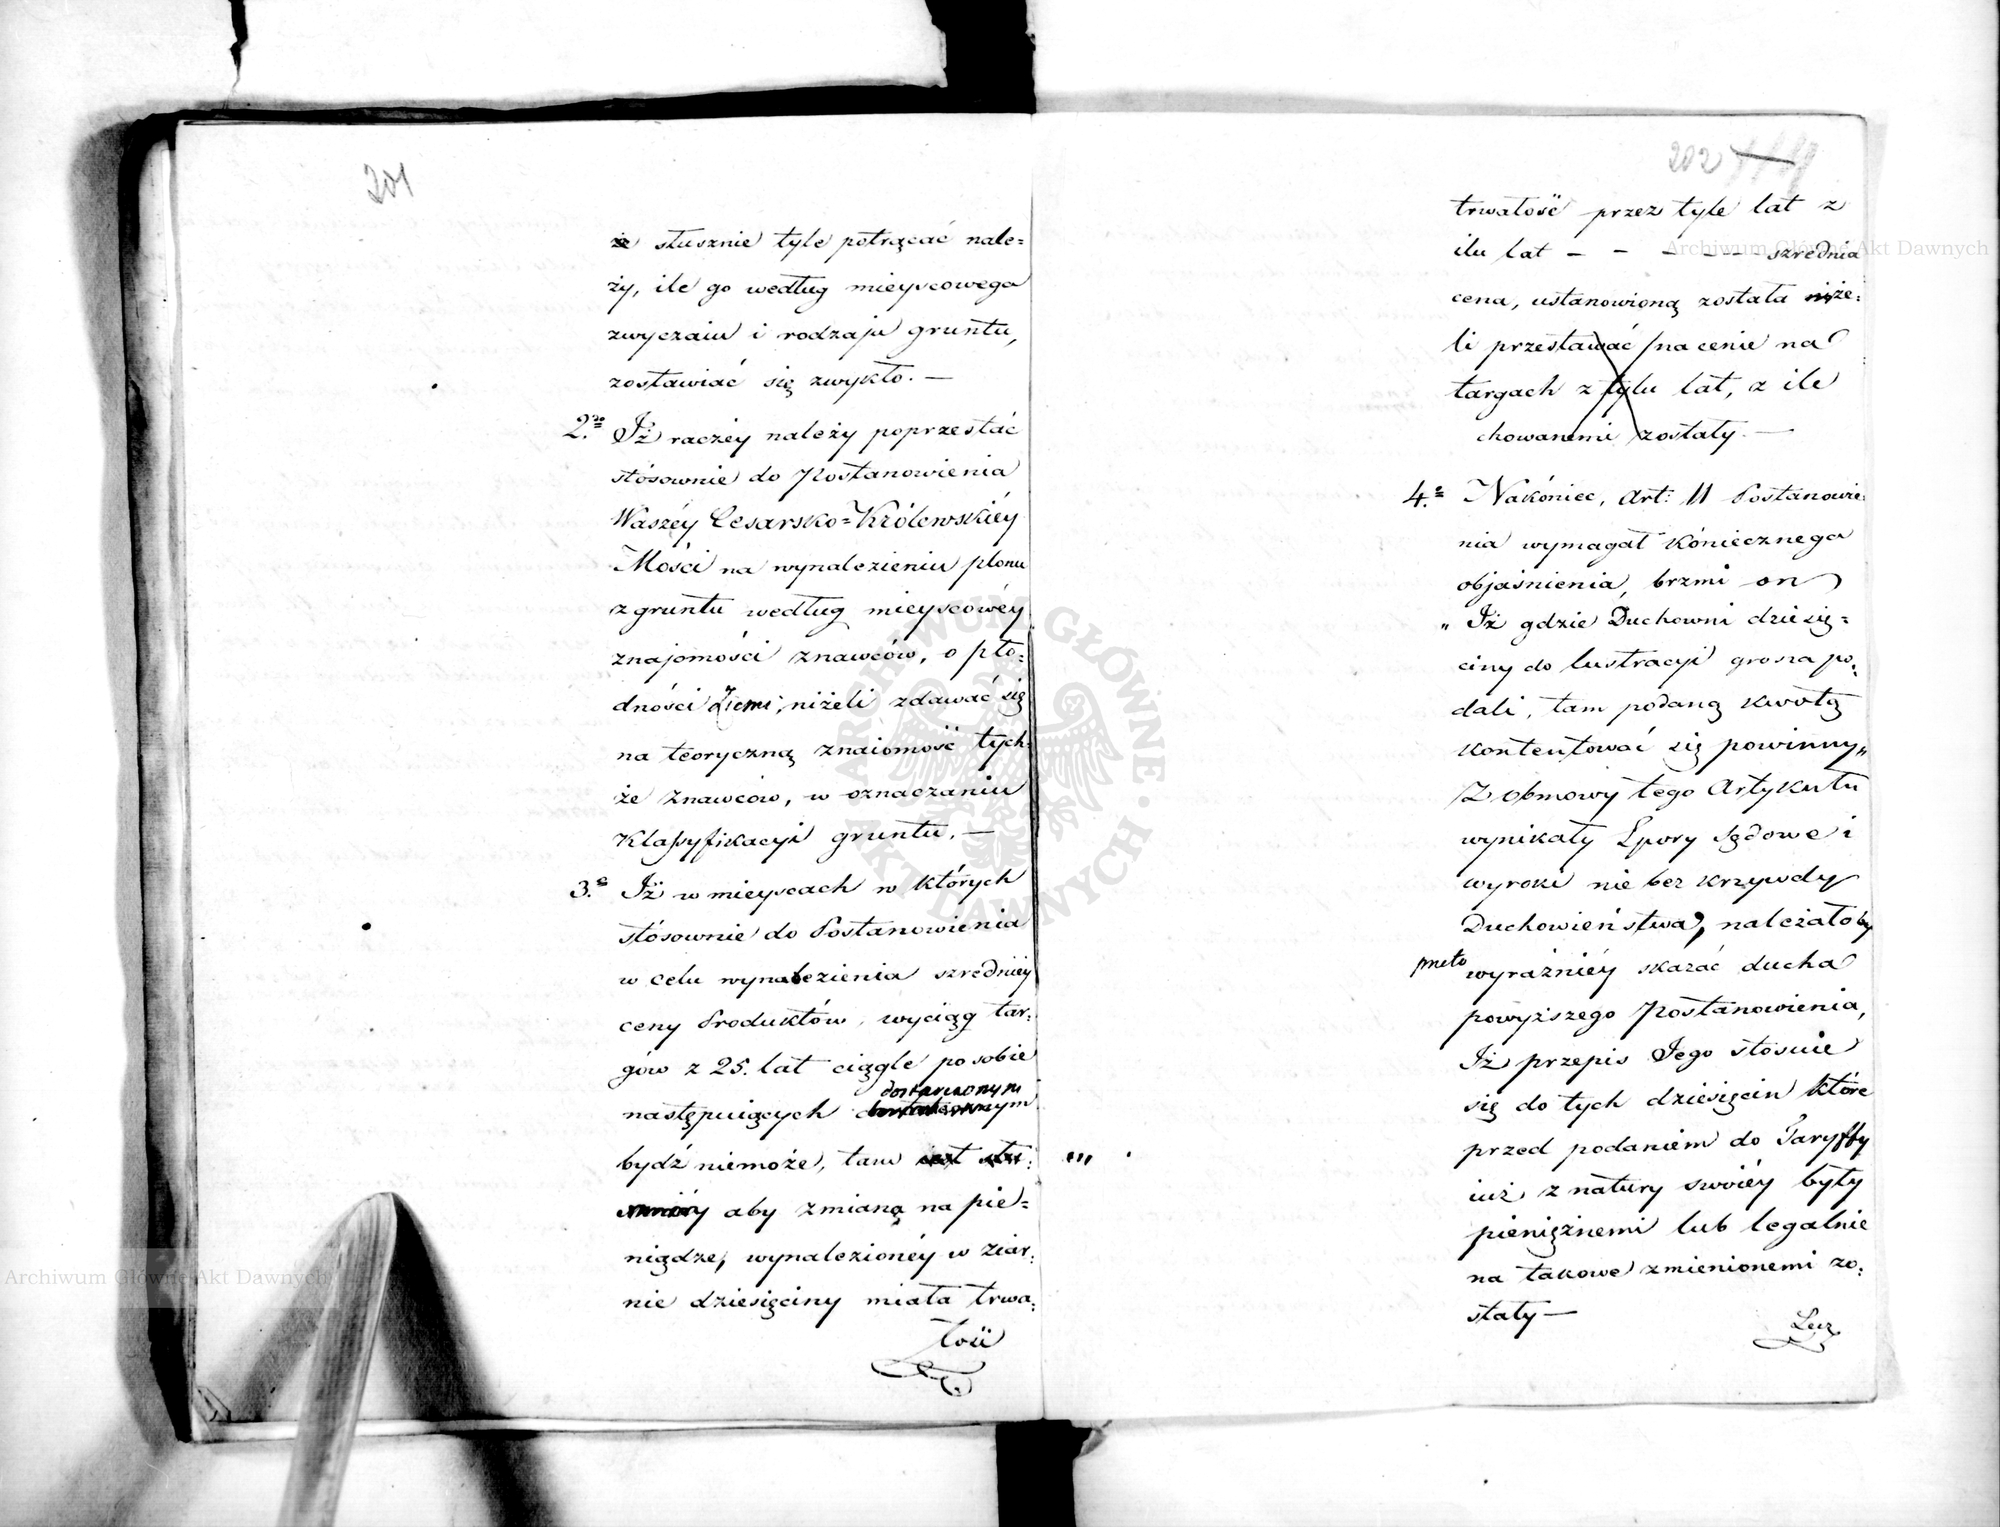 201
że słusznie tyle potrącać nale=
ży, ile go według mieyscowego
zwyczaiu i rodzaju gruntu,
zostawiać się zwykło. —
2.re Iż raczéy należy poprzestać
stósownie do Postanowienia
Waszéy Cesarsko=Królewskiéy
Mości na wynalezieniu plonu
z gruntu według mieyscowéy
znajomości znawców, o pło=
dności Ziemi, niżeli zdawać się
na teoryczną znaiomość tych=
że znawców, w oznaczaniu
Klassyfikacyi gruntu. —
3.e Iż w mieyscach w których
stósownie do Postanowienia
w celu wynalezienia szredniéy
ceny Produktów, wyciąg tar=
gów z 25. lat ciągle po sobie
dostarczonym
następuiących
bydź niemoże, tam iest
aby zmianą na pie=
niądze, wynalezionéy w ziar=
nie dziesięciny miała trwa=
łość
202
trwałość przez tyle lat z
ilu lat — — — — — szrednia
cena, ustanowioną została niże=
li przestawać na cenie na
targach z tylu lat, z ile
chowanemi zostały. —
4.e Nakóniec, Art: 11 Postanowie=
nia wymagał kóniecznego
objaśnienia, brzmi on
„ Iż gdzie Duchowni dziesię=
ciny do lustracyi grosza po=
dali, tam podaną kwotą
kontentować się powinny„
Z obmowy tego Artykułu
wynikały Spory Sądowe i
wyroki nie bez krzywdy
Duchowieństwa, należałoby
przeto wyraźniéy skazać ducha
powyższego Postanowienia,
Iż przepis Jego stósuie
się do tych dziesięcin które
przed podaniem do Taryffy
iuż z natury swóiéy były
pieniężnemi lub legalnie
na takowe zmienionemi zo=
stały —
Lecz
Archiwum Główne Akt Dawnych
Archiwum Główne Akt Dawnych
ARCHIWUM GŁÓWNE AKT DAWNYCH